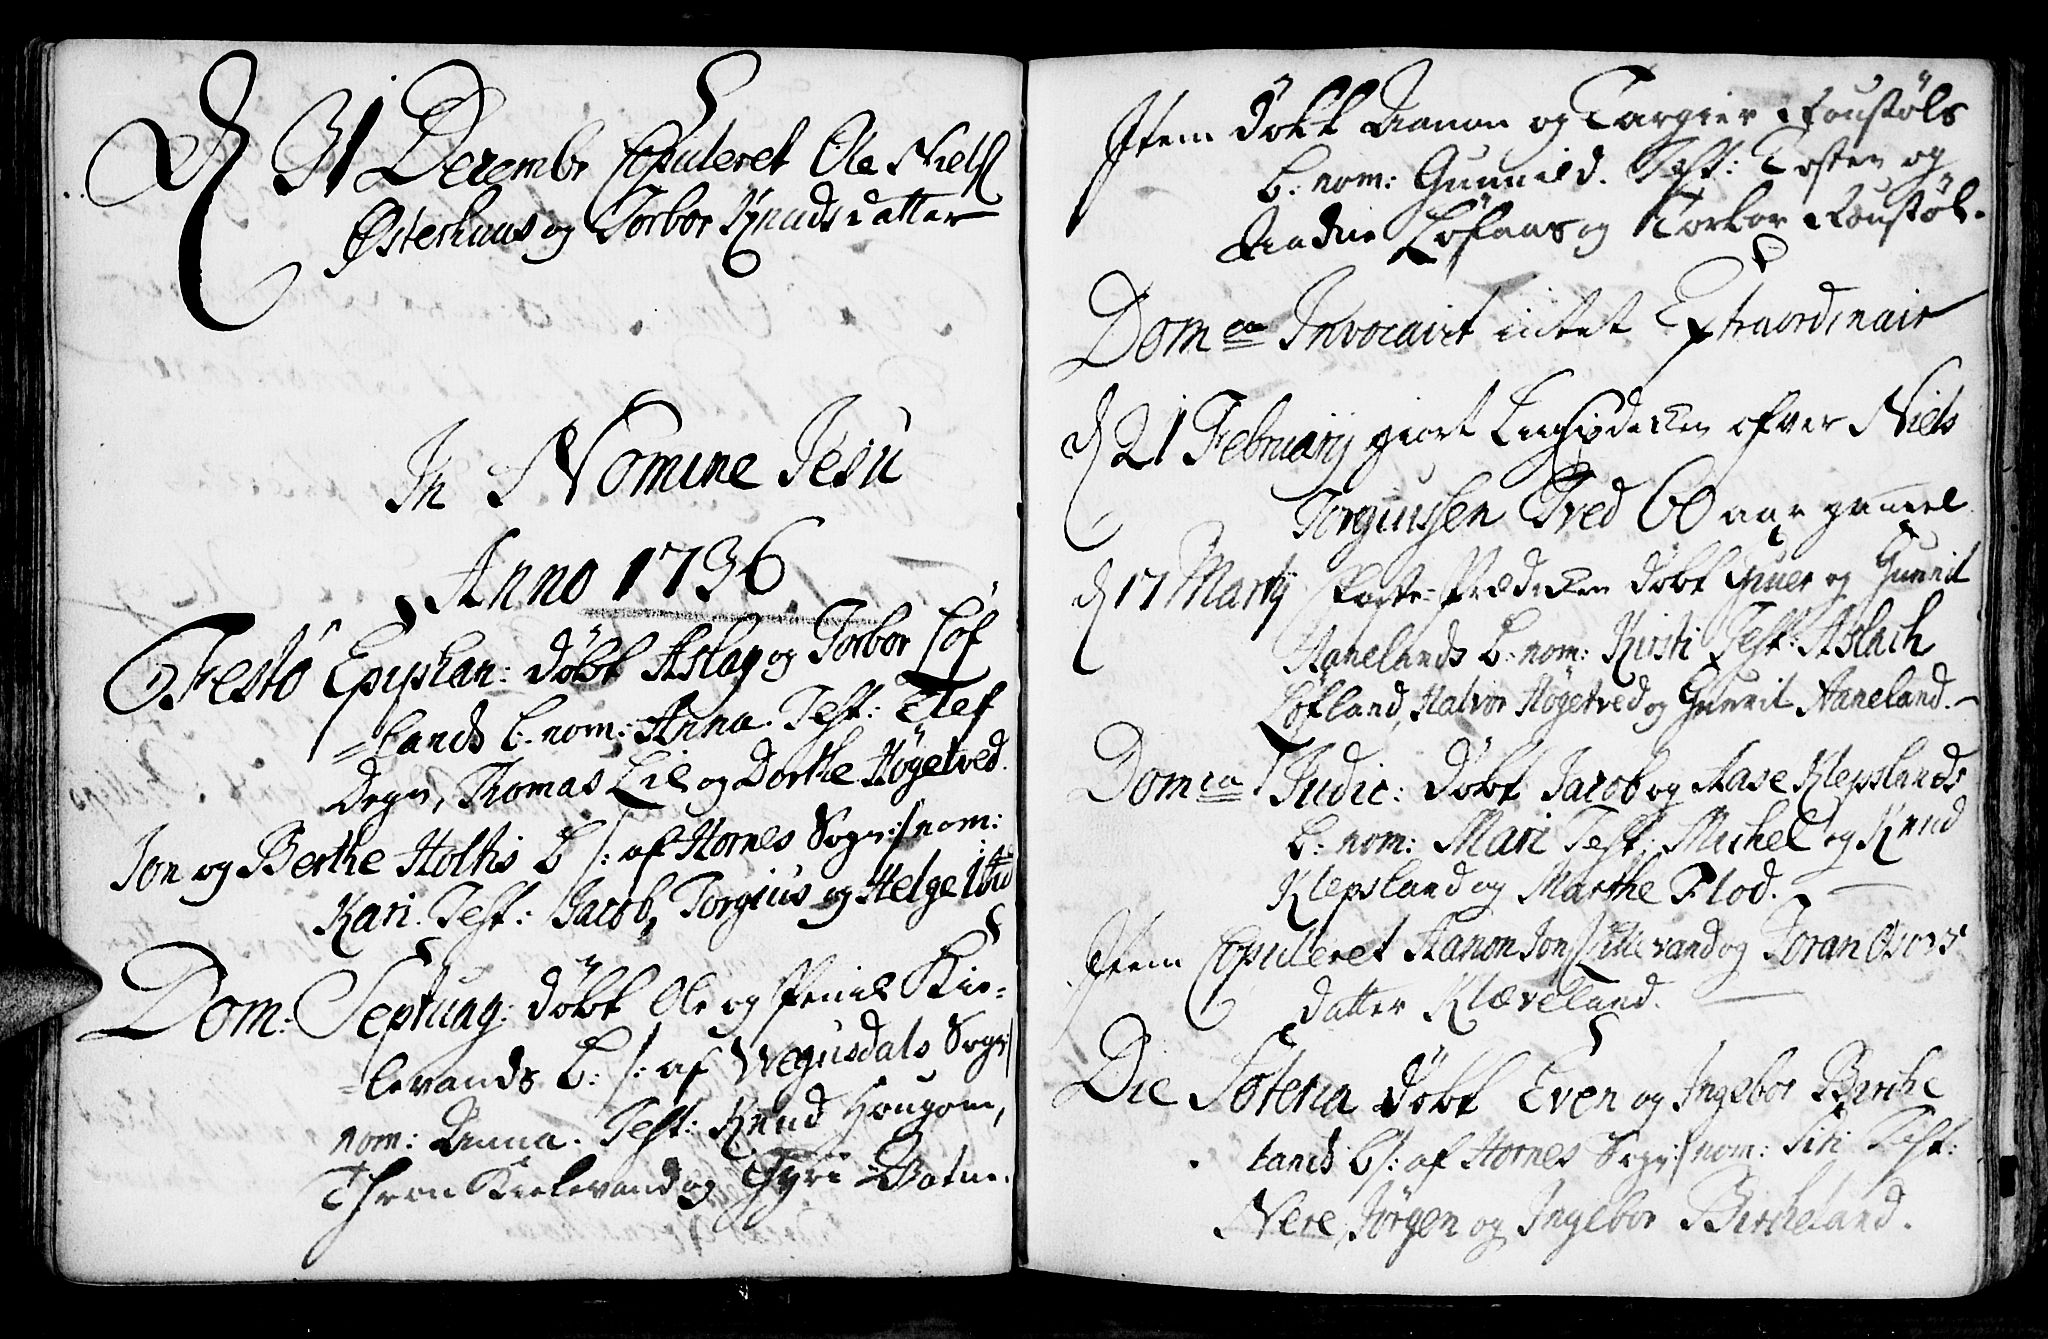 D 31 Decembr Copuleret Ole Niels
Østerhuus og Torbor Knudsdatter
In Nomine Jesu
Anno 1736
Festo Epiphan: døbt Aslag og Torbor Løf
=lands b. nom: Anna. Test: Elef
Degn, Thomas Lil og Dorthe Høgetved.
Jon og Berthe Holtis b /: af Hornes Sogn:/ nom:
Kari. Test: Jacob, Torgius og Helge
Dom: Septuag: døbt Ole og Peniel Kie=
=levands b: /: af Wegusdals Sogn:/
nom: Anna. Test: Knud Hougom,
Thron Kielevand og Tyri Batne.
Item døbt Aanon og Targier Roustøls
b: nom: Gunnild. Test: Tosten og
Aadne Løfaas og Torbor Roustøl.
Domca Invocavit intet Extraordinair
D 21 February giort Liigprædicken ofver Niels
Torgiussen Tved 60 aar gamel
D 17 Martij Faste-Prædicken døbt Giuer og Gunnil
Aanelands b: nom: Kirsti Test: Aslach
Løfland, Halvor Høgetved og Gunnil Aaneland.
Domca Judic: Døbt Jacob og Aase Klepslands
b: nom: Mari Test: Michel og Knud
Klepsland og Marthe Flod.
Item Copuleret Aanon Jons Lillevand og Joran
datter Klæveland.
Die Soteria Døbt Even og Ingebor Birche
lands b /: af Hornes Sogn:/ nom: Siri Test:
Nere, Jørgen og Ingebor Bircheland.